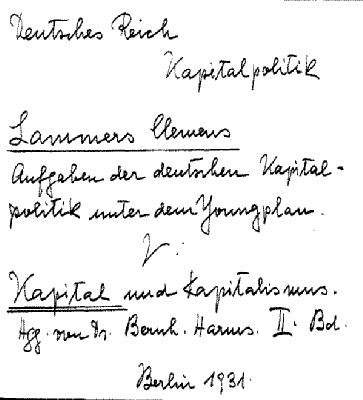 Deutsches Reich
Kapitalpolitik
Lammers Clemens
Aufgaben der deutschen Kapital-
politik unter dem Youngplan.
V:
Kapital und Kapitalismus.
Hgg. von Dr. Bernh. Harms. II. Bd.
Berlin 1931.